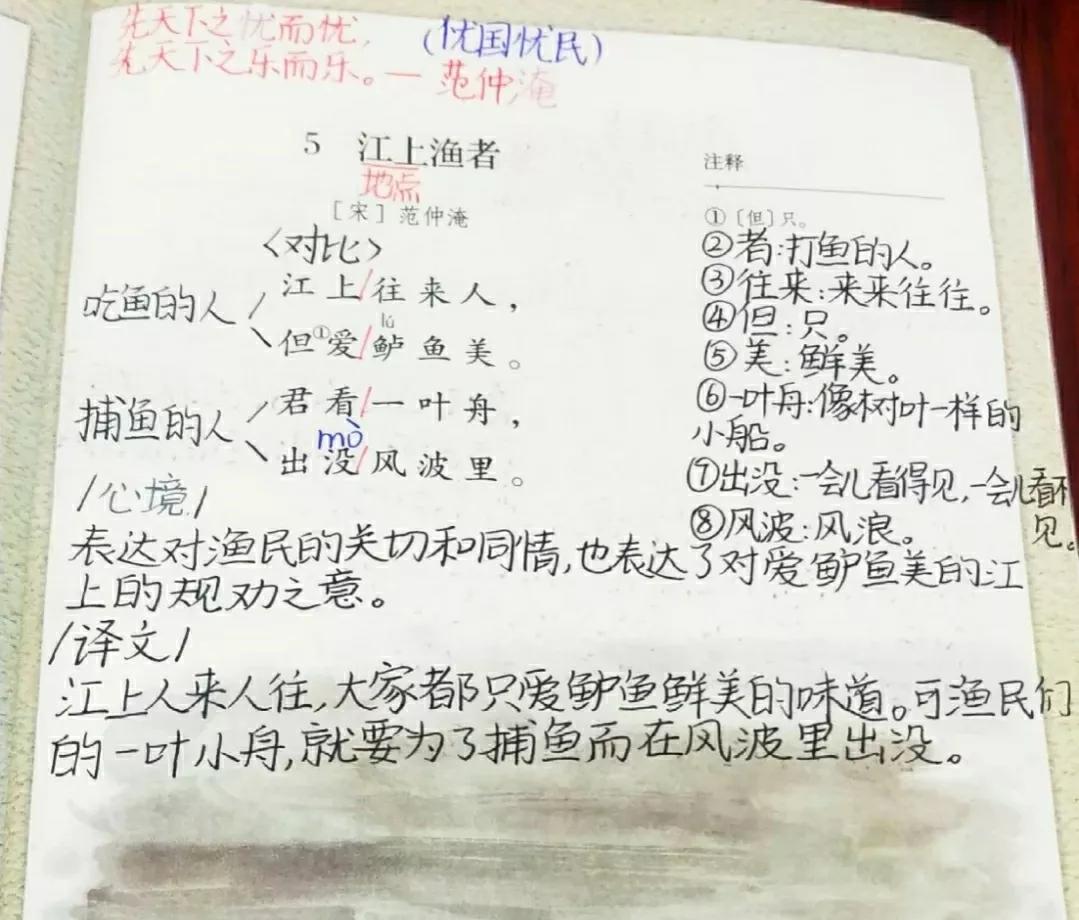 先天下之忧而忧，（忧国忧民）
先天下之乐而乐。— 范仲淹
5 江上渔者
地点
［宋］范仲淹
〈对比〉
吃鱼的人
江上/往来人，
lú
但①爱/鲈鱼美。
捕鱼的人
君看/一叶舟，
mò
出没/风波里。
注释
①［但］只。
②者:打鱼的人。
③往来:来来往往。
④但:只。
⑤美:鲜美。
⑥一叶舟:像树叶一样的
小船。
⑦出没:一会儿看得见,一会儿看不
见。
⑧风波:风浪。
/心境/
表达对渔民的关切和同情,也表达了对爱鲈鱼美的江
上的规劝之意。
/译文/
江上人来人往,大家都只爱鲈鱼鲜美的味道。可渔民们
的一叶小舟,就要为了捕鱼而在风波里出没。